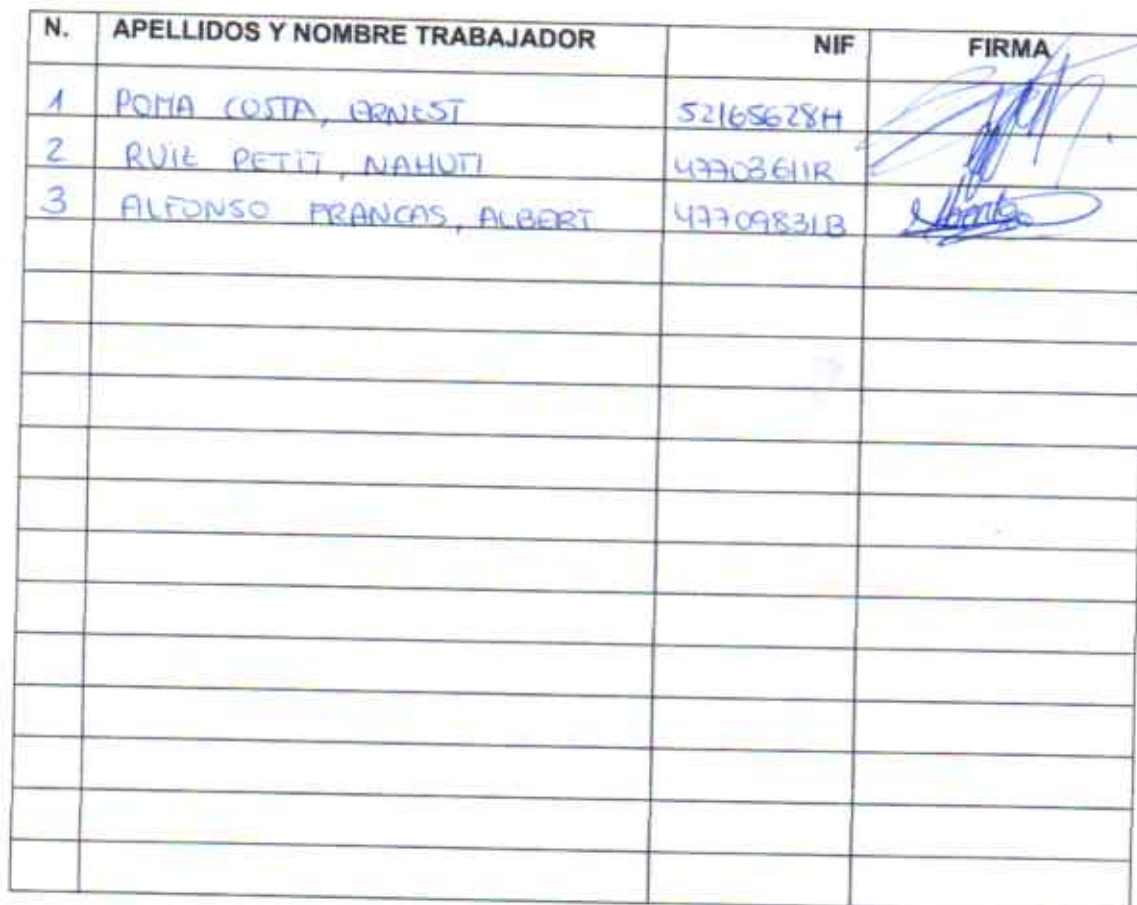 N. APELLIDOS Y NOMBRE TRABAJADOR NIF FIRMA
1 POMA COSTA, ERNEST 52165628H
2 RUIZ PETIT, NAHUTI 47703611R
3 ALFONSO FRANCAS, ALBERT 47709831B